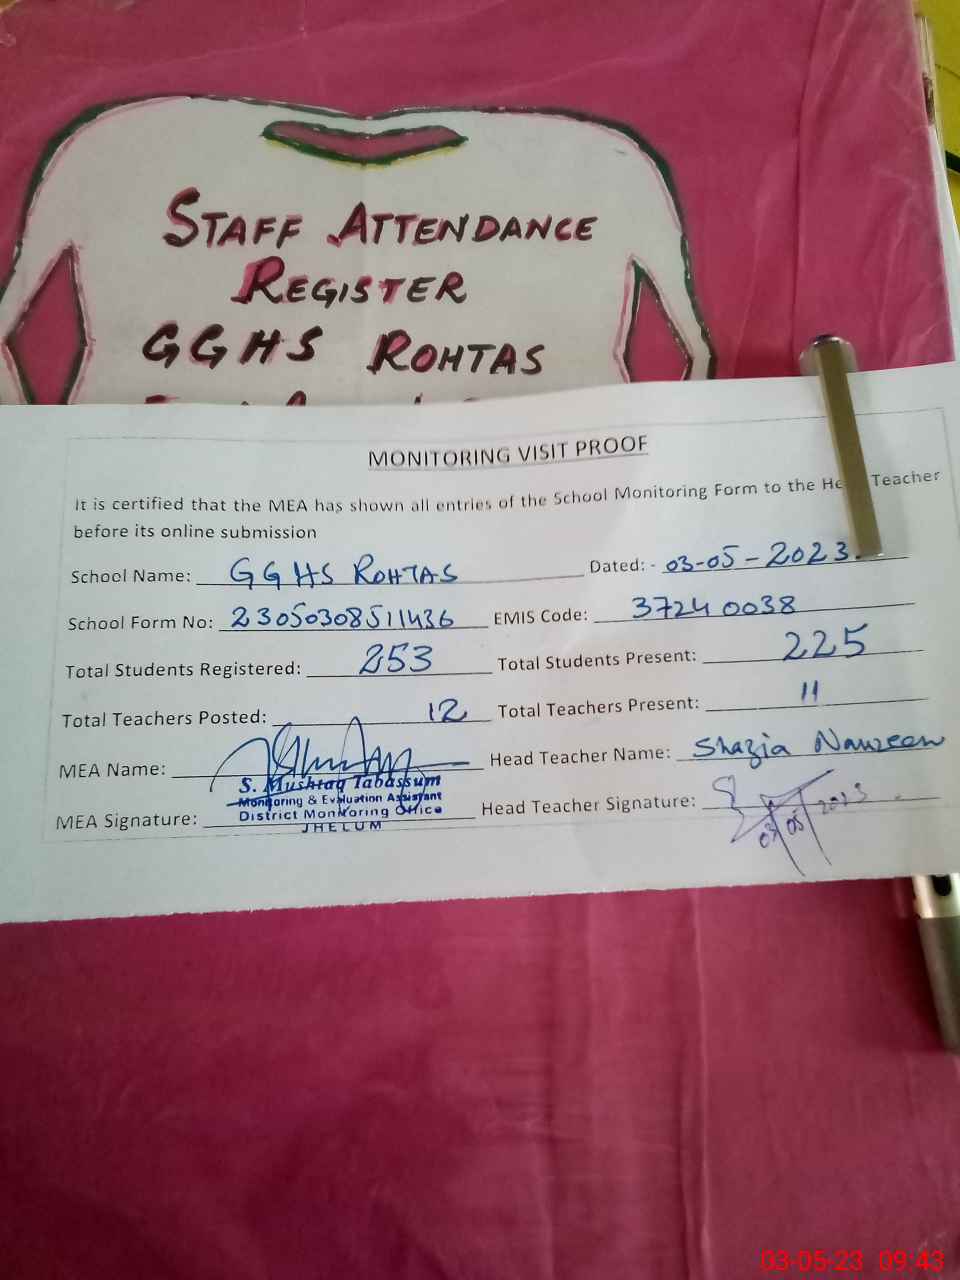 STAFF ATTENDANCE
REGISTER
GGHS ROHTAS
MONITORING VISIT PROOF
It is certified that the MEA has shown all entries of the School Monitoring Form to the He Teacher
before its online submission
School Name: GGHS ROHTAS Dated: - 03-05-2023.
School Form No: 23050308511436 EMIS Code: 37240038
Total Students Registered: 253 Total Students Present: 225
Total Teachers Posted: 12 Total Teachers Present: 11
MEA Name: Head Teacher Name: Shazia Naureen
S. Mushtaq Tabassum
Monitoring & Evaluation Assistant
MEA Signature: District Monitoring Office Head Teacher Signature:
JHELUM
03 05 2023
03-05-23 09:43